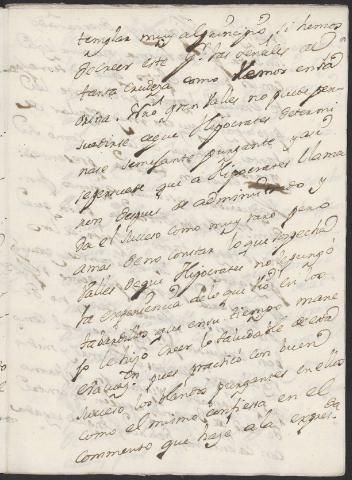 templar muy al principio si hemos
de creer este qe. las señales de
tanta crudeza como vemos en la
orina. Nro. gran Valles no puede per-
suadirse a que Hipocrates determi
nase semejante purgante y asi
que a Hipocrates llama
ron despues de administrado y
da el suceso como muy raro pero
a mas de no constar lo que sospecha
Valles de que Hipocrates no le purgó
la experiencia de lo que vió en los
tabardillos que en su tiempo mane
jo le hizo creer lo saludable de esta
evacuon. pues practicó con buen
suceso los blandos purgantes en ellos
como el mismo confiesa en el
commento que haze a la expresada